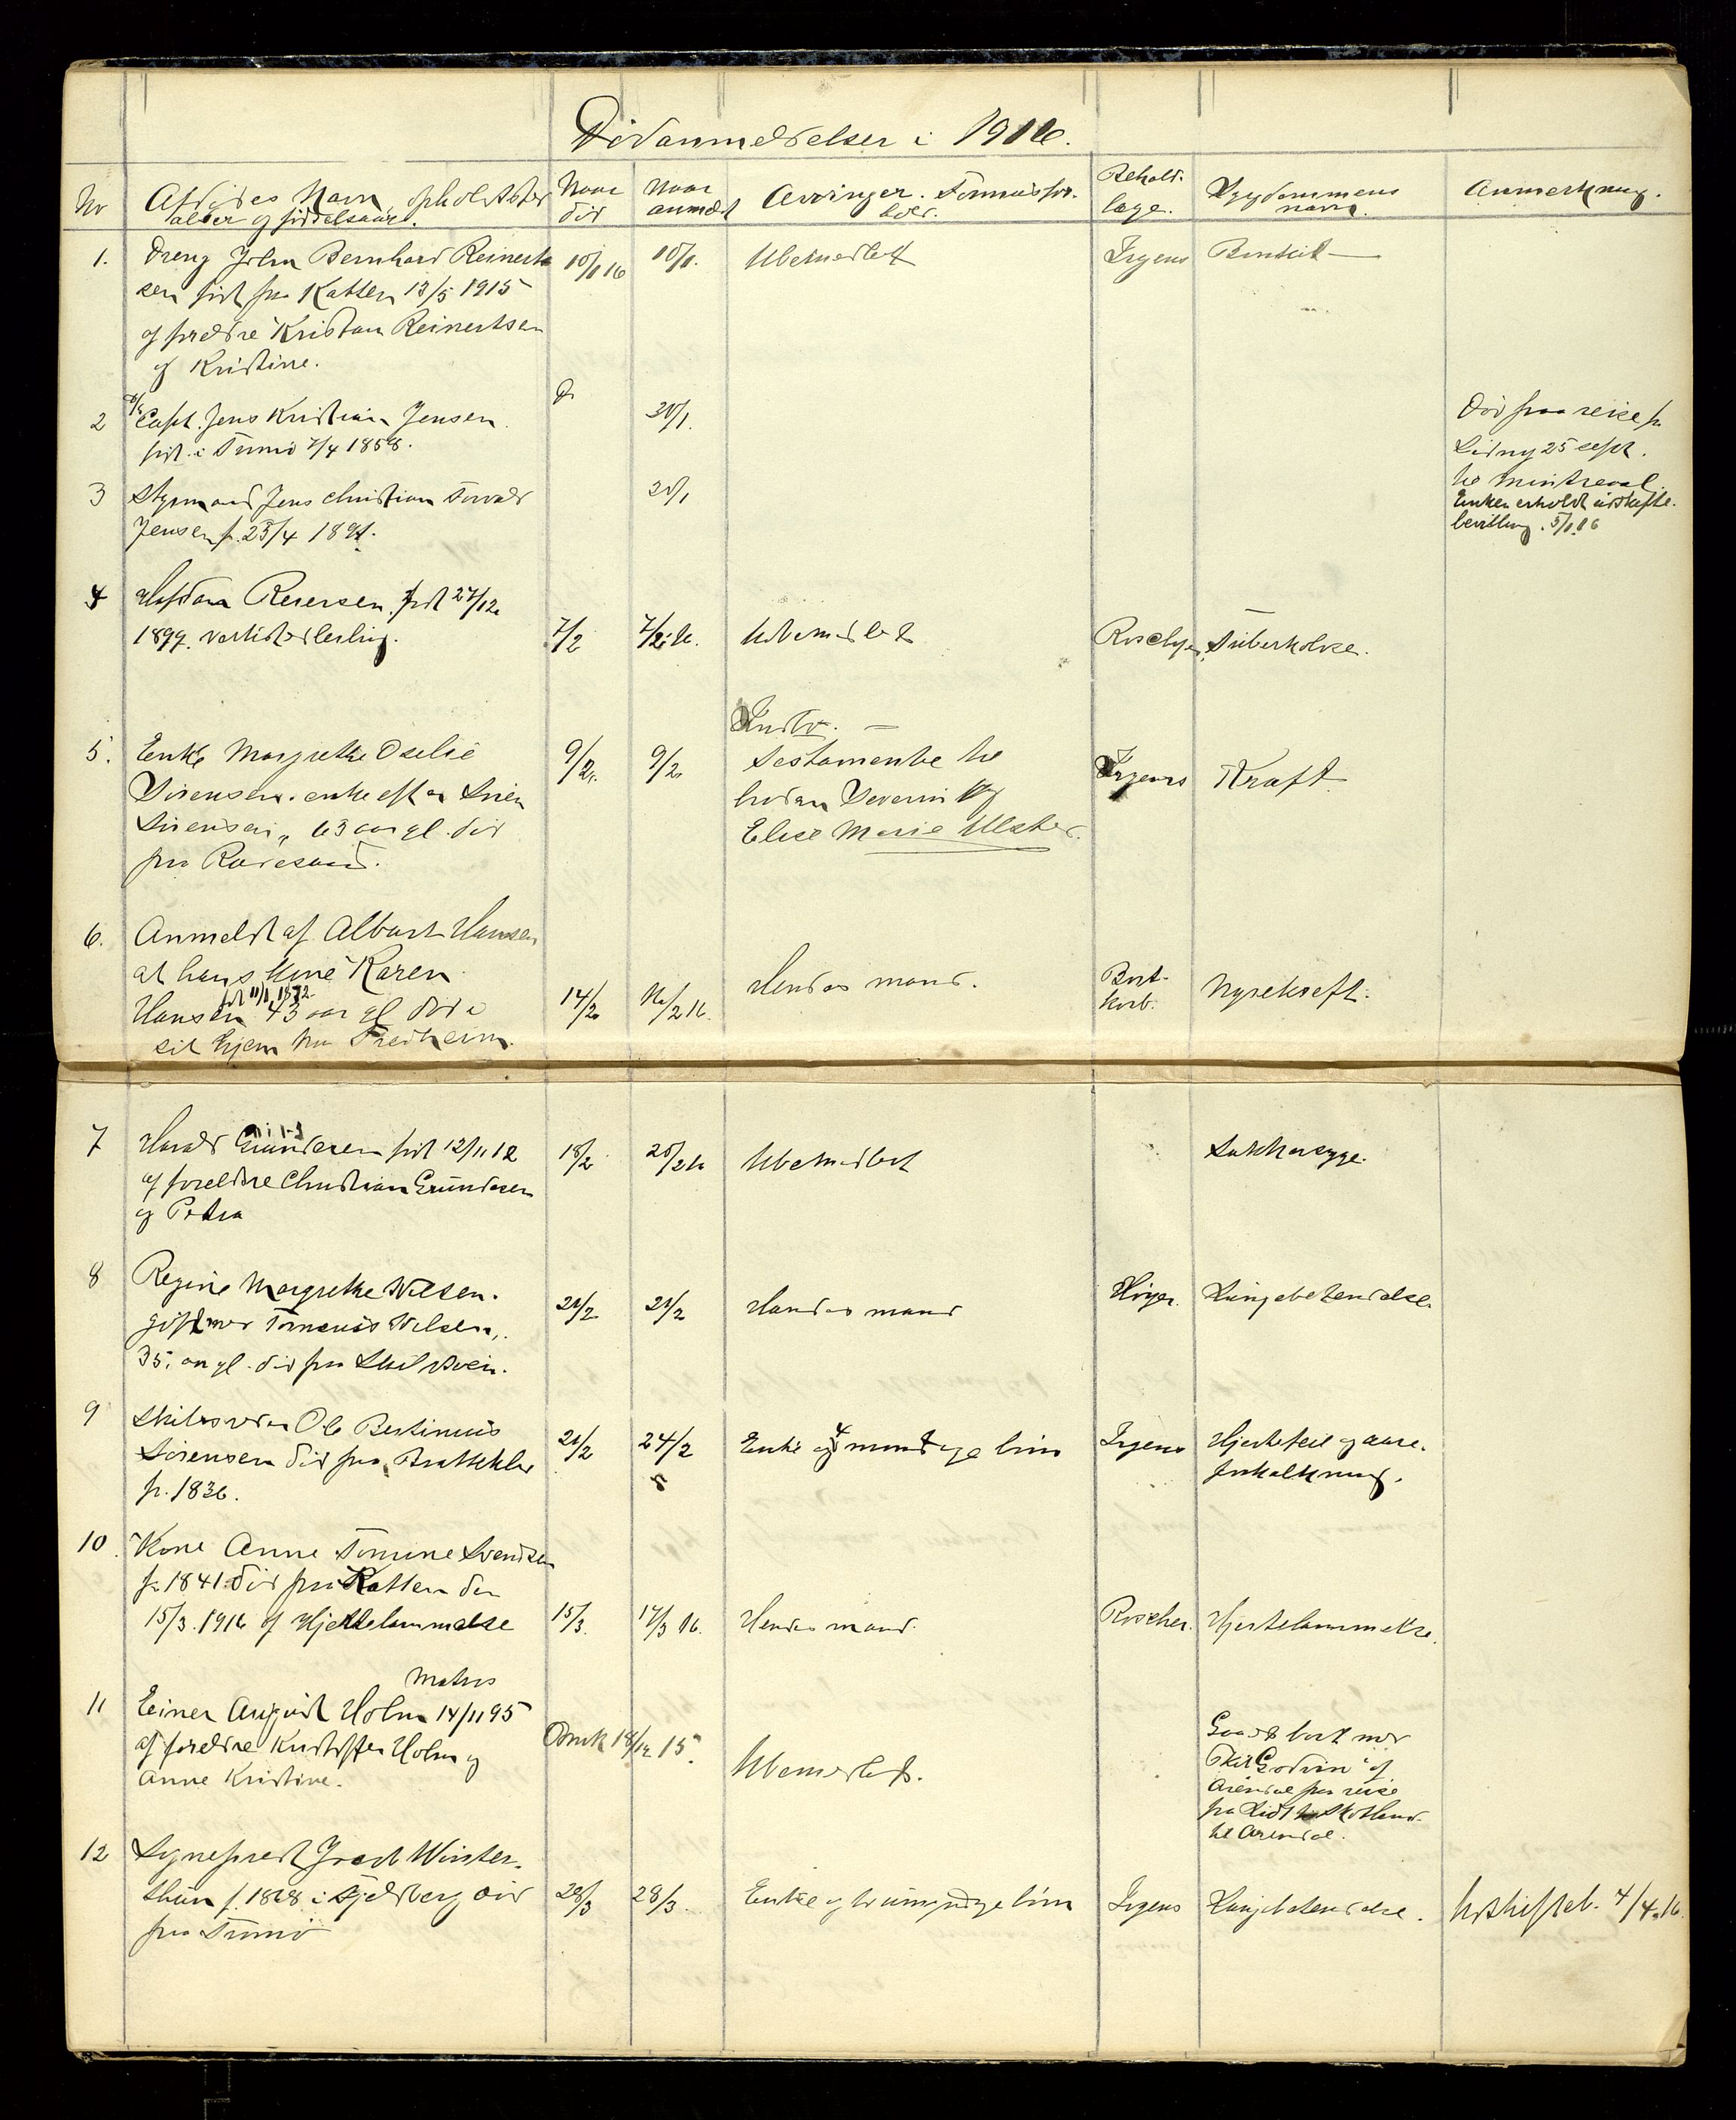 Dødanmeldelser i 1916.
Nr
Afdødes Navn, opholdssted
alder og fødselsaar.
Naar
død
Naar
anmeldt
Arvinger. Formuesfor-
hold.
Behold.
læge.
Sygdommens
navn.
Anmerkning.
1. Dreng John Bernhard Reinert
sen født paa Katten 13/5 1915
af forældre Kristian Reinertsen
og Kristine.
10/1 16
10/1.
Ubemedlet
Irgens
2 Capt. Jens Kristian Jensen
født i Tromø 7/4 1858.
31/1.
Død paa reise fra
Sidny 25 sept.
til Montreal.
Enken erholdt uskifte-
bevilling 5/1.16
3 Styrmand Jens Christian Torvald
Jensen f. 23/4 1891.
31/1
4 Halfdan Reiersen født 27/12
1899.
7/2
7/2.16.
Ubemidlet
Roscher
Tuberkolose.
5. Enke Margrethe Oselie
Sørensen enke efter Søren
Sørensen, 63 aar gl. død
paa Rævesand.
9/2.
9/2
Testamente til
Severin og
Elise Marie Ulster.
Irgens
Kræft
6. Anmeldt af Albert Hansen
at hans kone Karen
født 11/1 1872.
Hansen 43 aar gl døde i
sit hjem paa Fredheim.
14/2
16/2 16.
Hendes mand.
Nyrekræft.
7 Harald Gundersen født 12/11 12
af forældre Christian Gundersen
og Petra
18/2
20/2 16
Ubemedlet
Sukkersyge.
8 Regine Margrethe Nilsen.
gift med Tomenius Nilsen,
35 aar gl. død paa Skilsøen.
21/2
21/2
Hendes mand
Høyer.
Lungebetændelse
9 Ole Bertinius
Sørensen død paa Brattekleiv
f. 1836.
21/2
24/2
Enke og 4 myndige børn
Irgens
Hjertefeil og aare-
forkalkning.
10. Kone Anne Tomine Svendsen
f. 1841 død paa Katten den
15/3.1916 af Hjertelammelse
15/3.
17/3 16.
Hendes mand.
Roscher.
Hjertelammelse.
Matros
11 Einer August Holm 14/11 95
af forældre Kristoffer Holm og
Anne Kristine.
Omk 18/12 15.
Ubemedlet.
Gaaet bort med
Skib "Godvin" af
Arendal paa reise
fra Leith Skotland
til Arendal.
12
f. 1868 i Fjelberg død
paa Tromø
28/3
28/3.
Enke og to umyndige børn
Irgens
Lungebetændelse.
Uskifteb. 4/4.16.